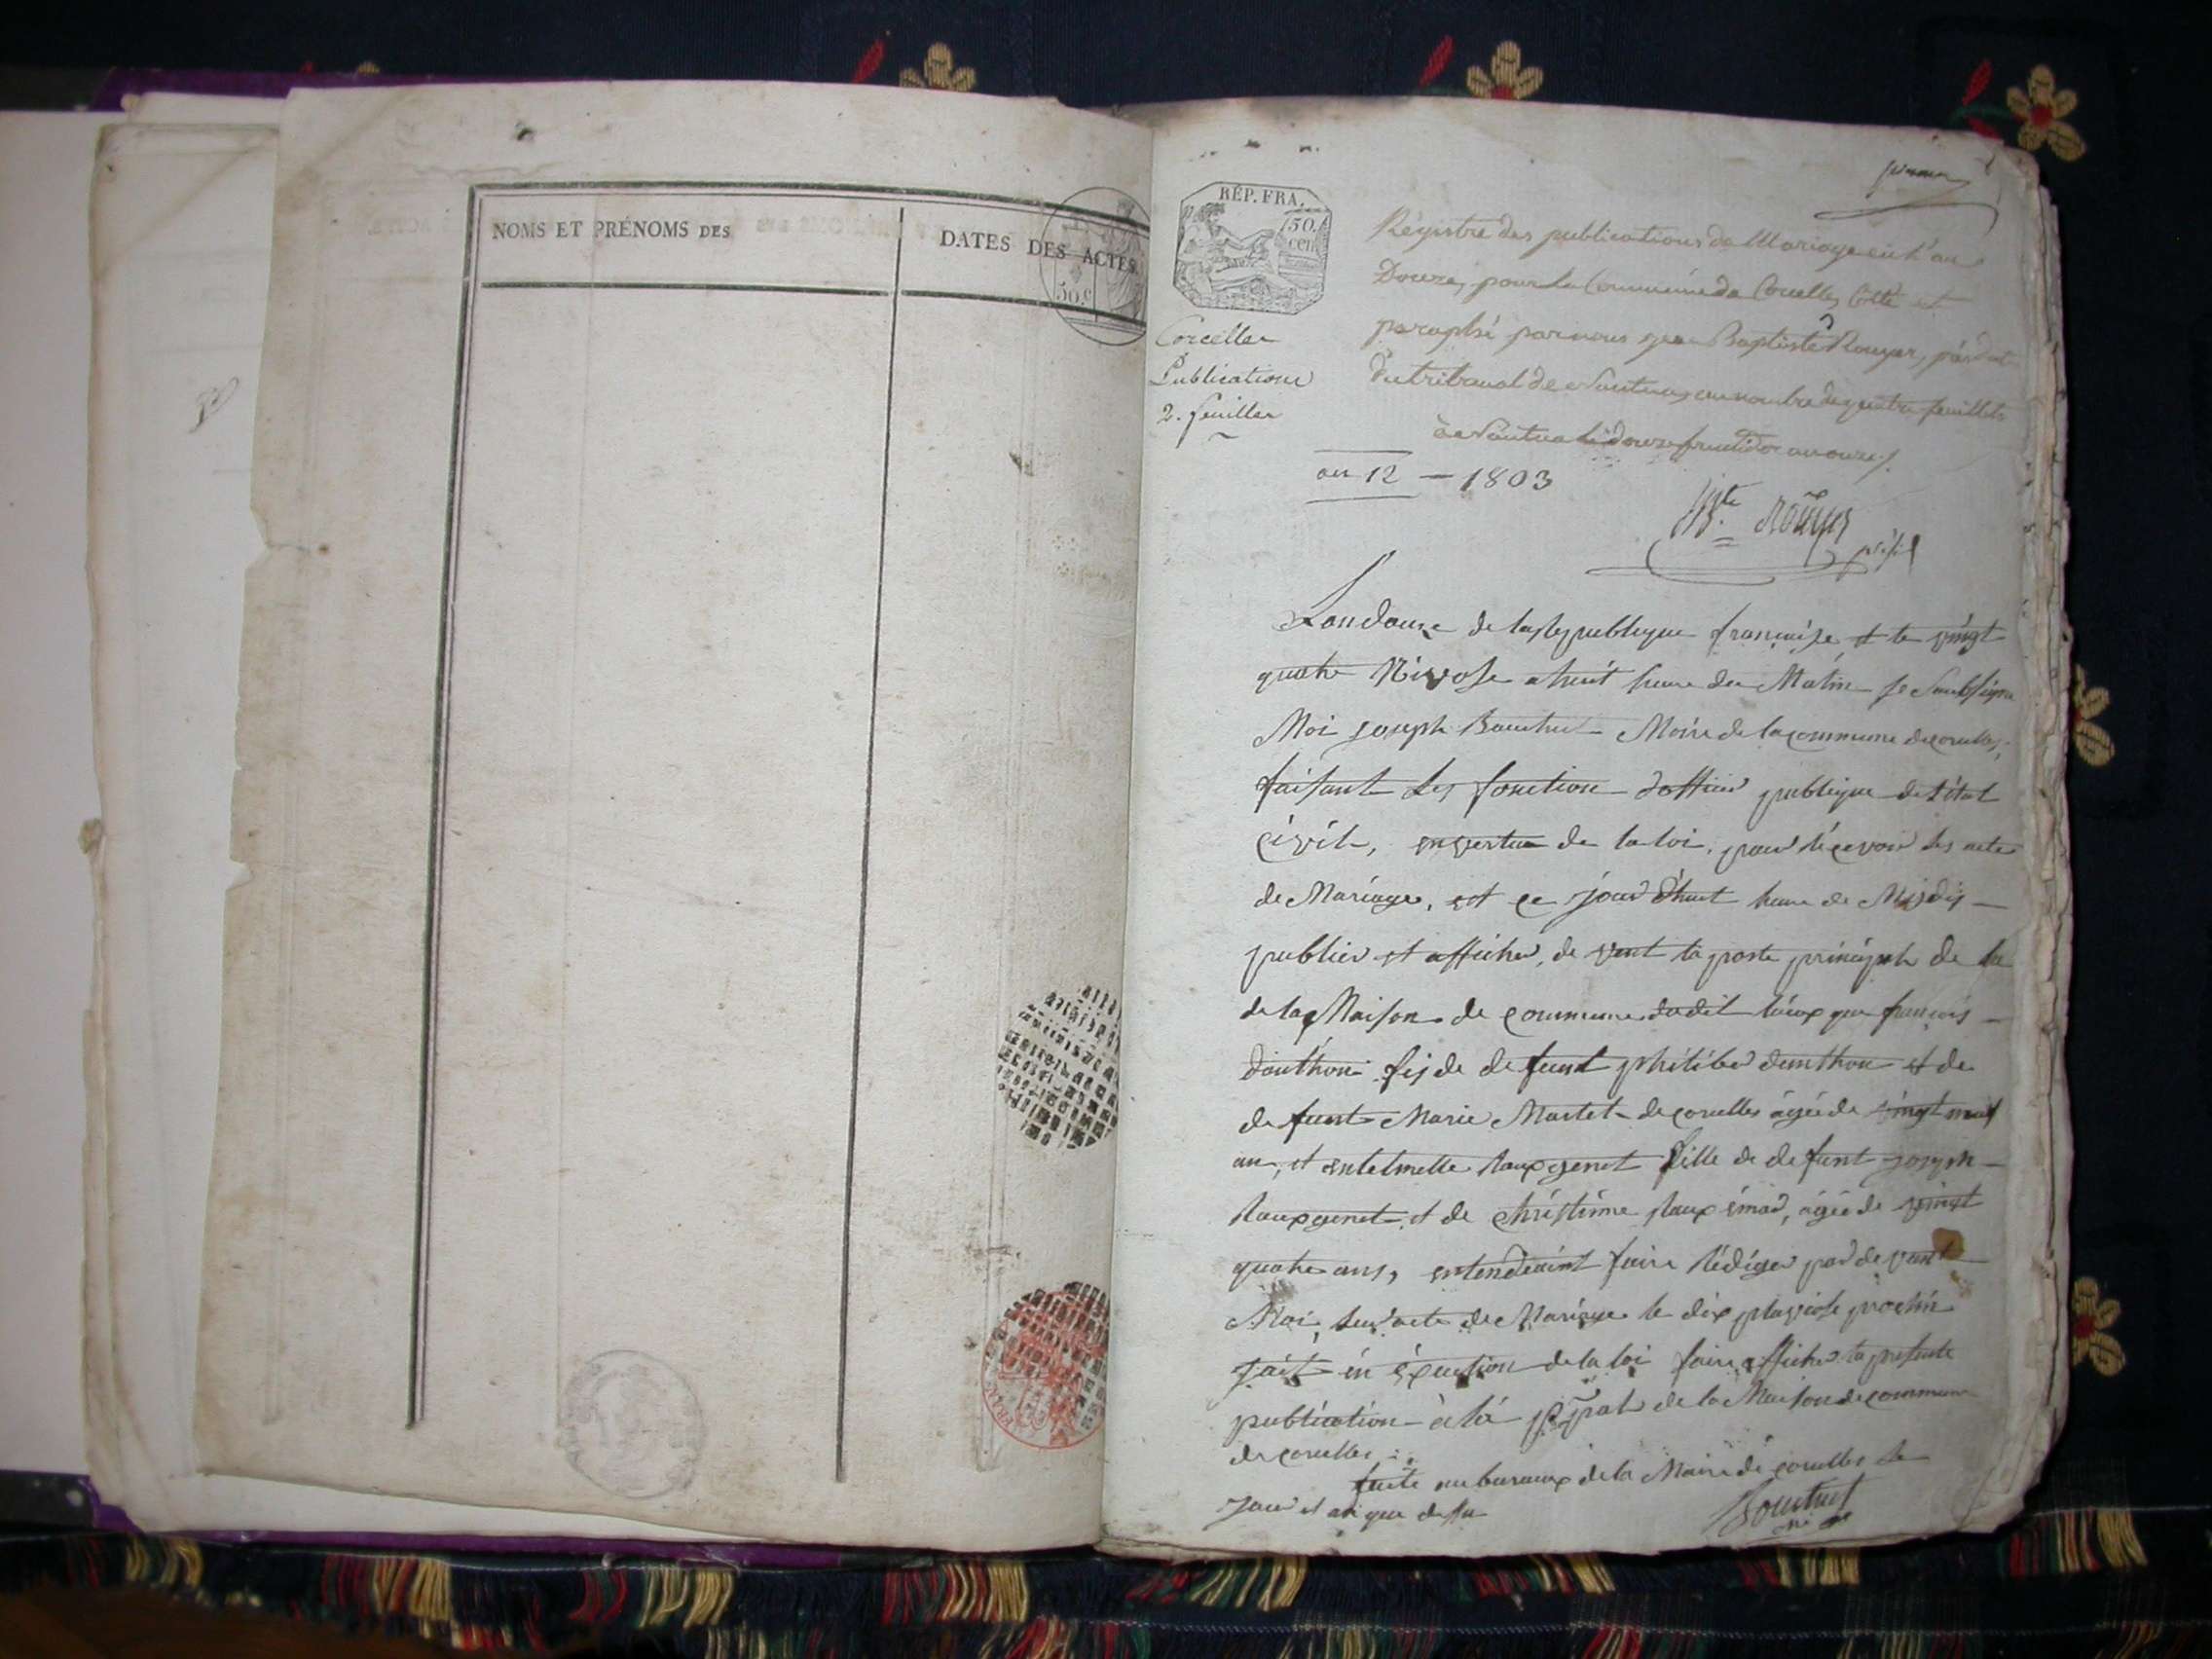 NOMS ET PRÉNOMS DES
DATES DES ACTES.
50.c
RÉP. FRA.
50.
cen
premier
Corcelles
Publications
2. feuilles
Régistre des publications de Mariage en l'an
Douze, pour la Commune de Corcelles, Cotté et
paraphé par nous Jean Baptiste Rouyer, présidt
du tribunal de Nantua, au nombre de quatre feuillets
à Nantua le douze fructidor an onze./.
an 12 — 1803
JB.te Rouyer
présid
Lan douze de la republique française et le vingt
quatre Nivose a huit heure du Matin je Soubsigne
Moi Joseph Bouchut Maire de la commune de corcelles,
faisant les fonction doffiier publique de l'état
çivil, en vertue de la loi, pour réçevoir les acte
de Mariage, est ce jour d'huit heure de Mijdij
publier et afficher, de vant la porte prinçipale de la
de la Maison de commune dudit lieux que françois
donthon fis de defunt philiber donthon et de
defunt Marie Martel de corcelles âgée de vingt neuf
an, et entelmette rouxgenet fille de defunt joseph
rouxgenet et de christinne roux émar, âgée de vingt
quatre ans, entendeaint faire rédiger par de vant
Moi, leur acte de Mariage le dix pluviose prochin
fait en éxecution de la loi faire afficher la presente
publication à la ppale de la Maison de commune
de corcelles ./.
faite au bureaux de la Maire de corcelles le
jour et an que dessu
Bouchut